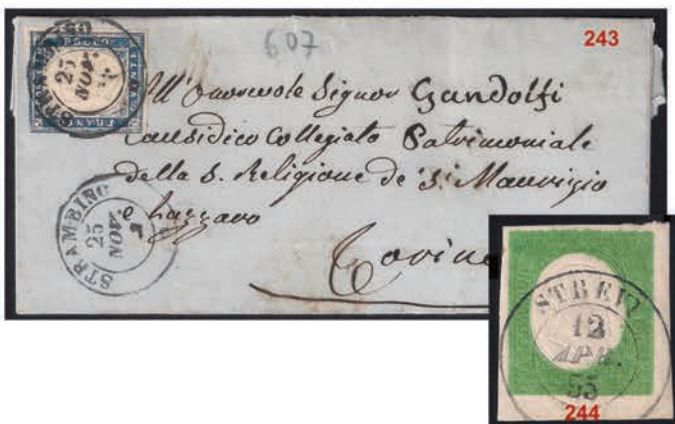 607
243
FRANCO BOLLO
STRAMBINO
25
NOV.
All' Onorevole Signor Gandolfi
Causidico Collegiato Patrimoniale
della S. Religione de' S.ti Maurizio
e Lazzaro
Torino
STRAMBINO
25
NOV.
STREVI
12
APR.
55
244